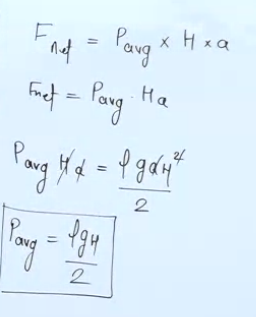 F_net = P_avg × H × a
F_net = P_avg · Ha
P_avg H a = ρgaH²/2
P_avg = ρgH/2